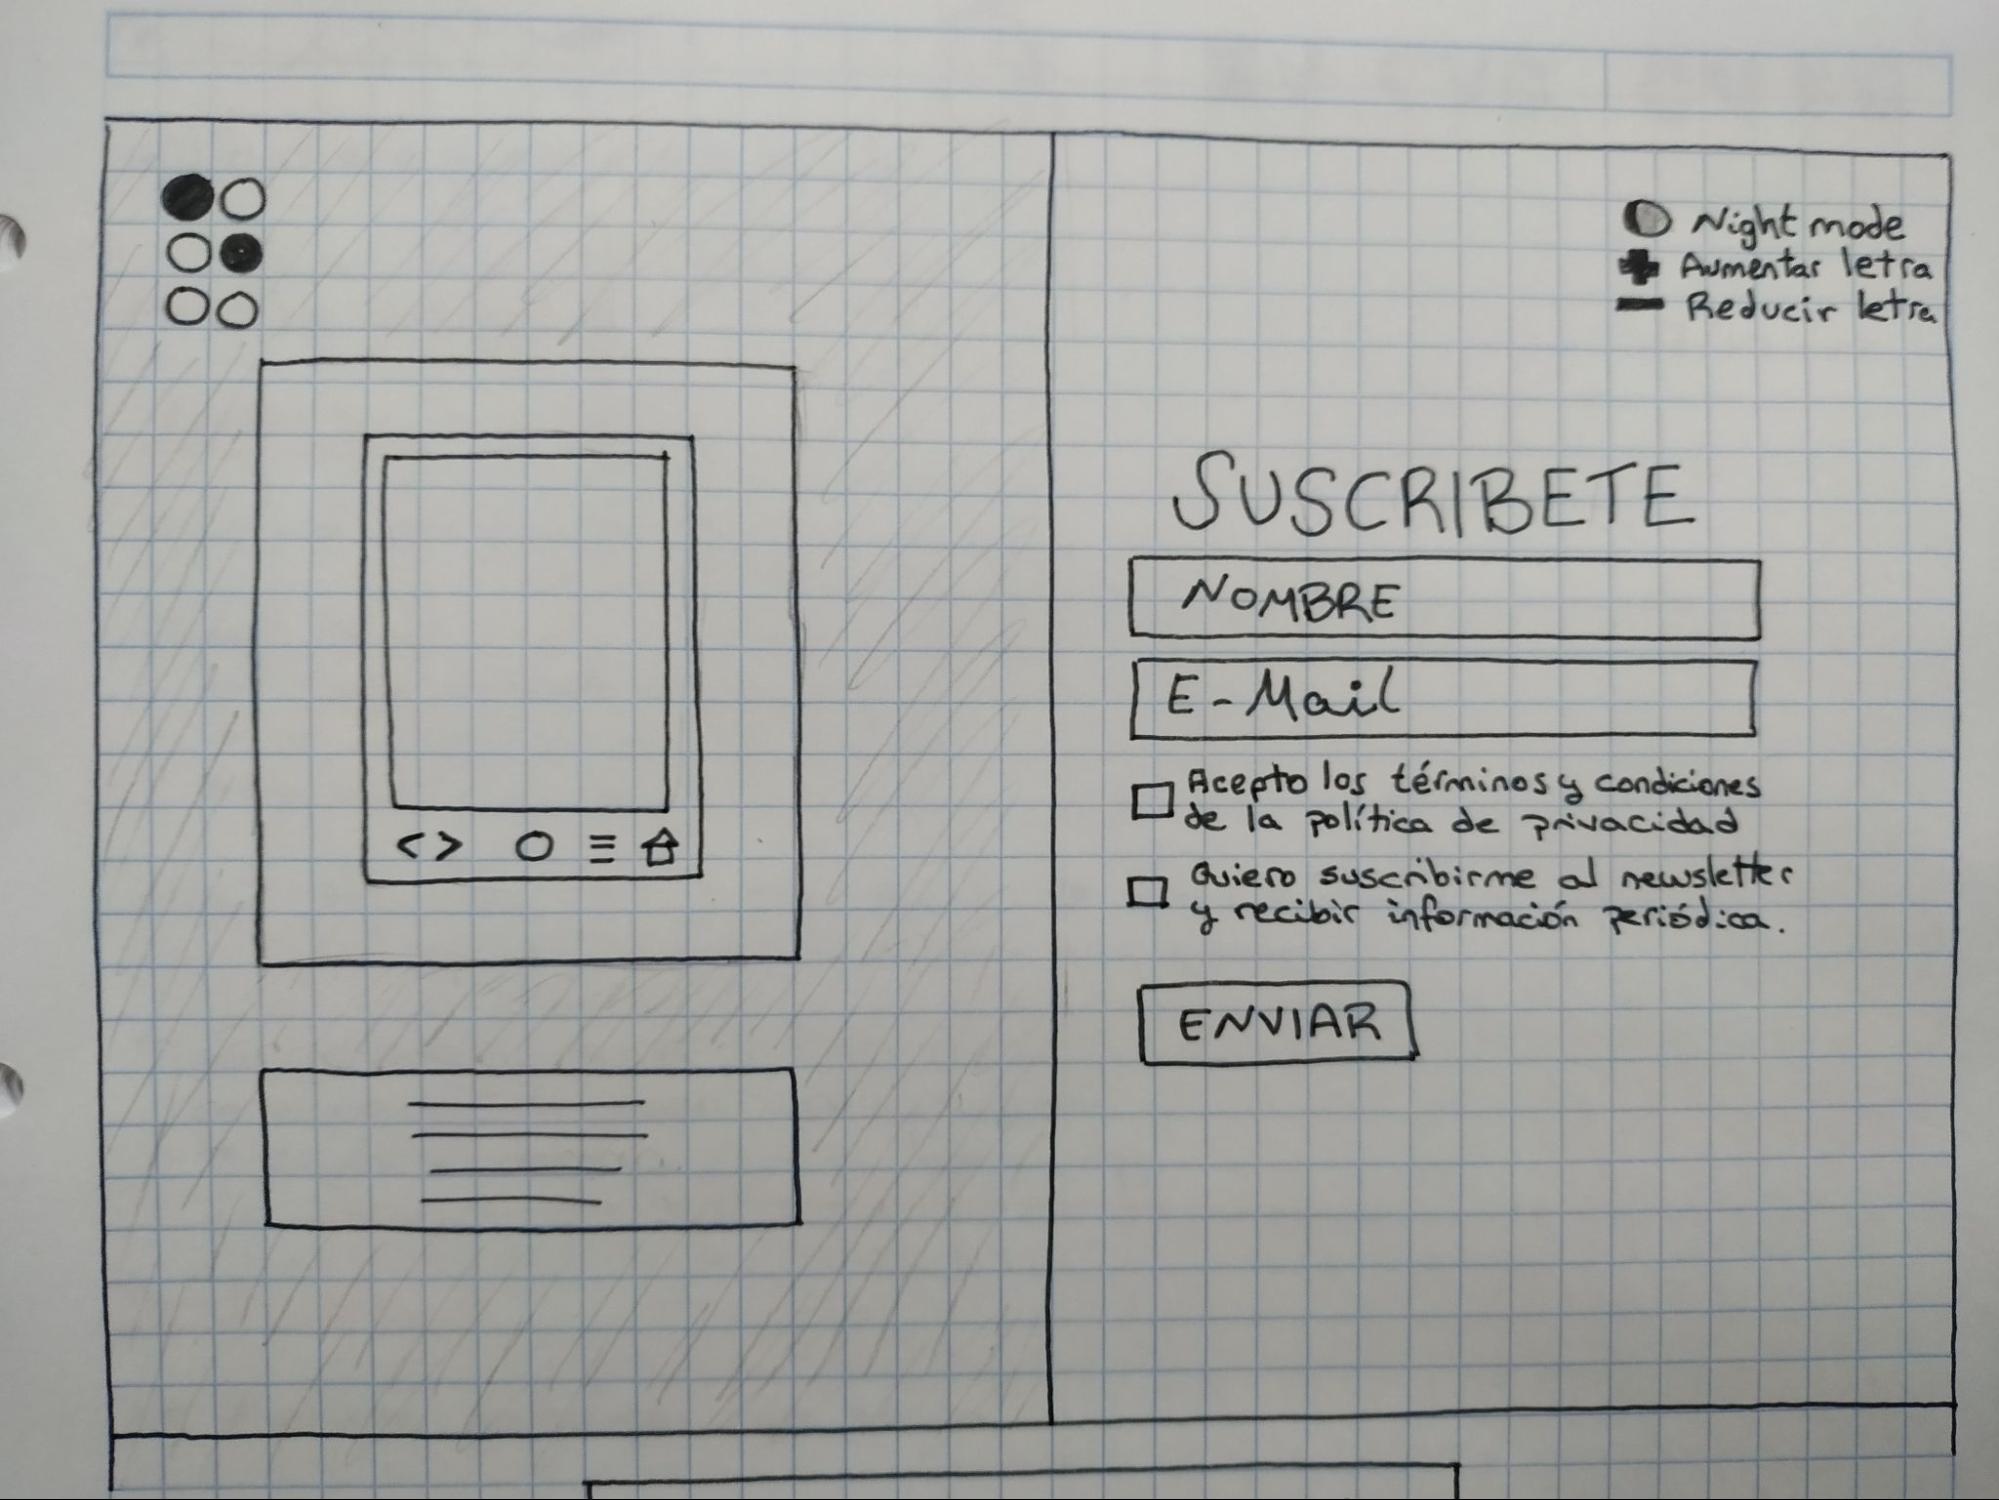 Night mode
Aumentar letra
Reducir letra
SUSCRIBETE
NOMBRE
E-Mail
Acepto los términos y condiciones
de la política de privacidad
Quiero suscribirme al newsletter
y recibir información periódica.
ENVIAR